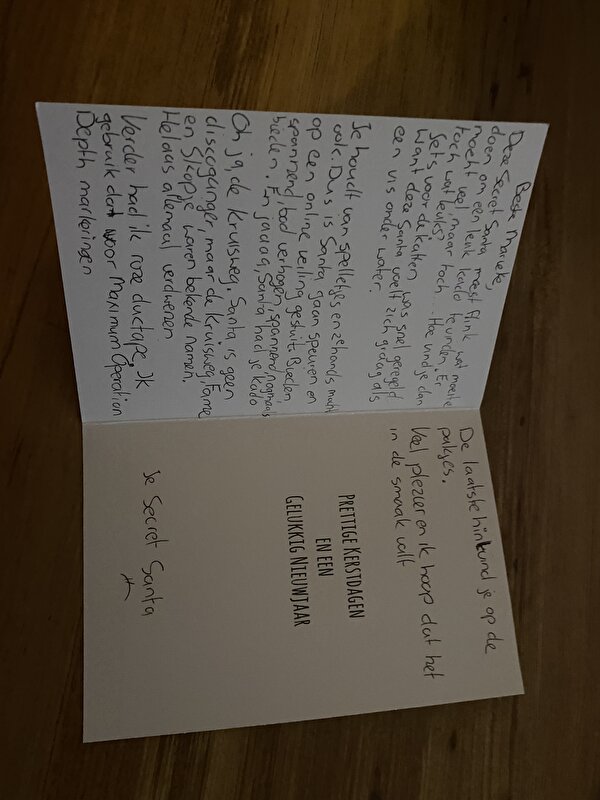 Beste Marieke,
Deze Secret Santa moest flink wat moeite
doen om een leuk kado te vinden. Er
mocht veel, maar toch ... Hoe vind je dan
toch wat leuks?
Iets voor de katten was snel geregeld
want deze Santa voelt zich graag als
een vis onder water.
Je houdt van spelletjes en zehands mag
ook. Dus is Santa gaan speuren en
op een online veiling gestuit. Bieden,
spannend, bod verhogen, spannend, nogmaals
bieden. En jaaaa, Santa had je kado
Oh ja, de Kruisweg, Santa is geen
discoganger, maar de Kruisweg, Fame
en Slkopje waren bekende namen.
Helaas allemaal verdwenen
Verder had ik roze ductape. Ik
gebruik dat voor Maximum Operation
Depth markeringen
De laatste hint vind je op de
pakjes.
Veel plezier en ik hoop dat het
in de smaak valt
PRETTIGE KERSTDAGEN
EN EEN
GELUKKIG NIEUWJAAR
Je Secret Santa